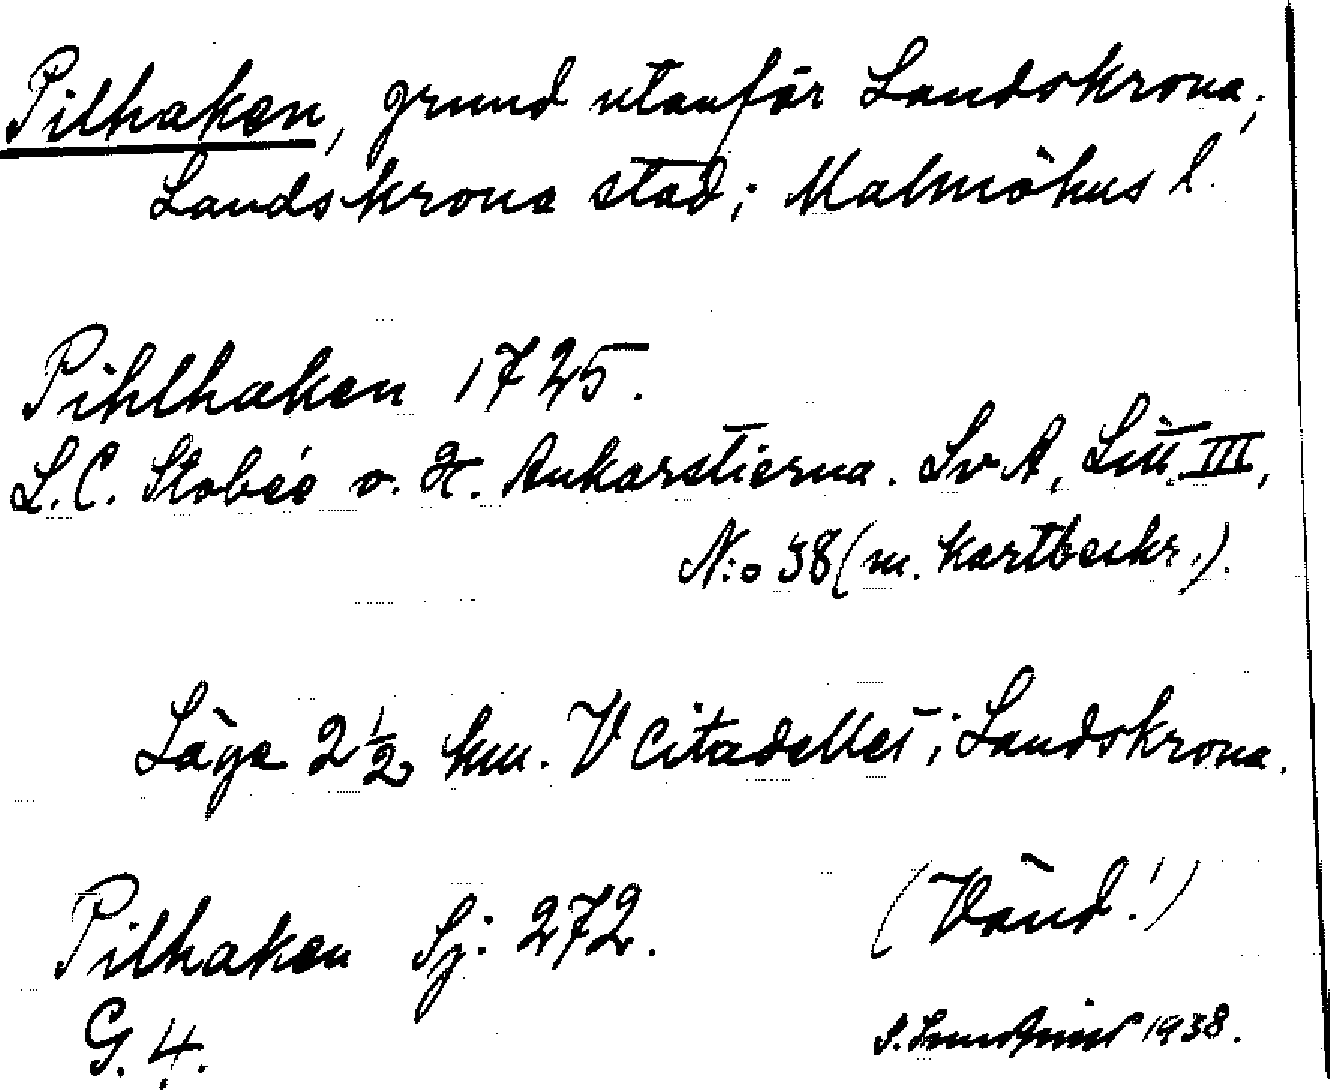 Pilhaken, grund utanför Landskrona;
Landskrona stad; Malmöhus l.
Pihlhaken 1725.
L.C. Stobée o. H. Ankarstierna. SvA, Litt. III,
N:o 38 (m. kartbeskr.).
Läge 2½ km. V Citadellet i Landskrona.
Pilhaken Sj: 272. (Vänd!)
G. 4. 1938.